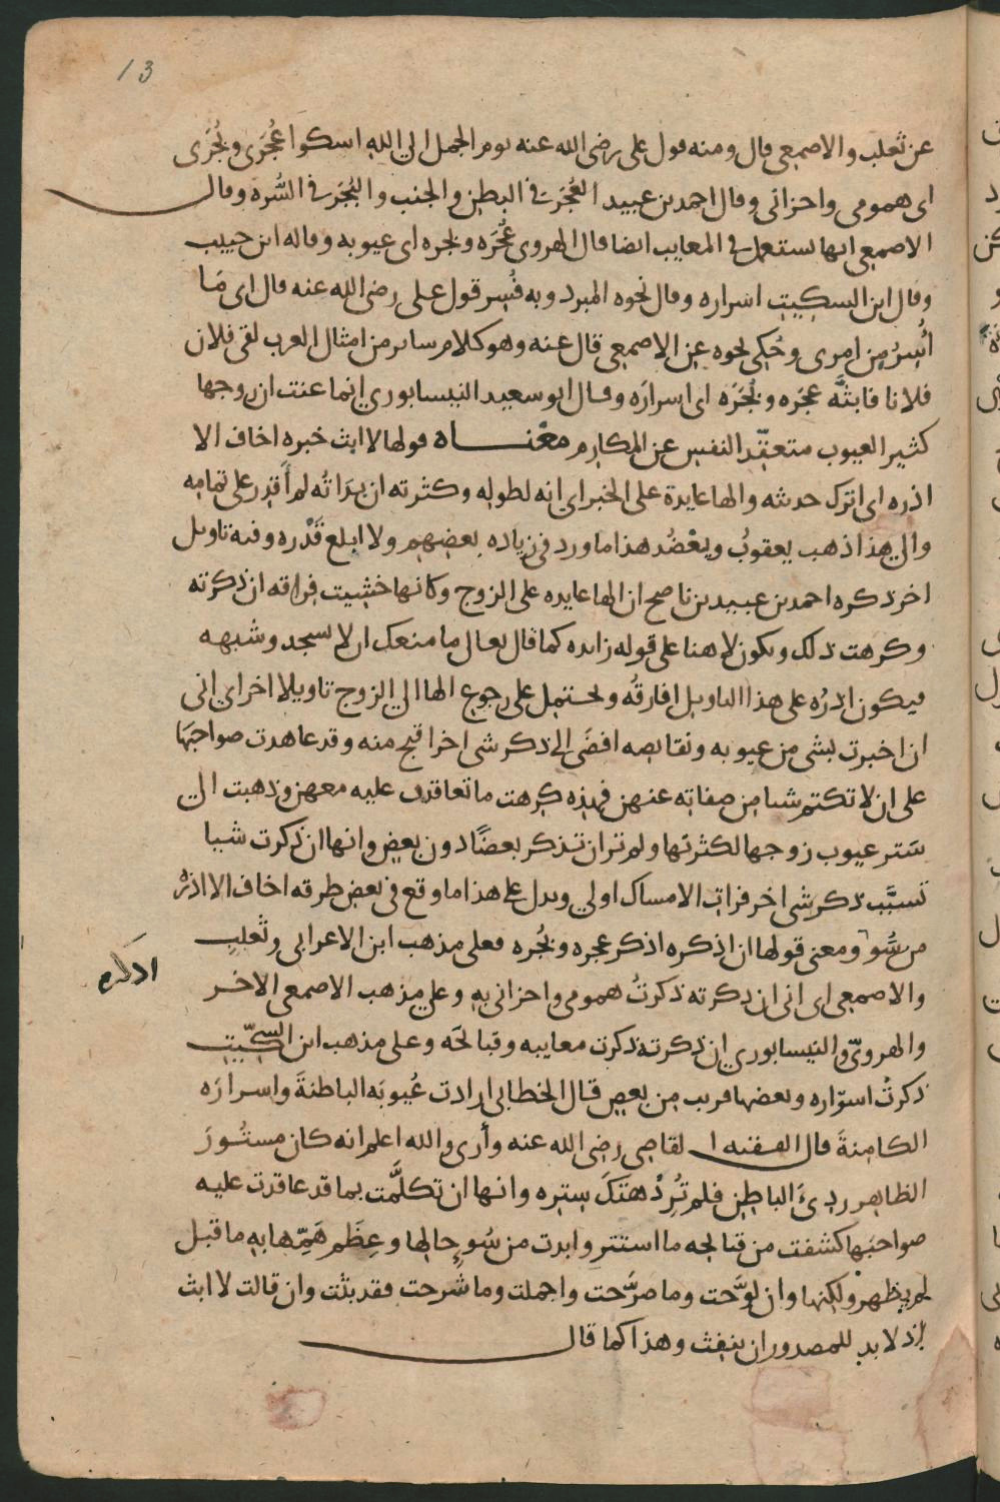 13
عن ثعلب والاصمعي قال ومنه قول علي رضي الله عنه يوم الجمل الي الله اسكوا عُجَري وبُجَري
اى همومي واحزاني وقال احمد بن عبيد العُجَر في البطن والجنب والبُجَر في السُّره وقال
الاصمعي انها تستعمل في المعايب ايضا قال الهروي عُجَره وبجره اى عيوبه وقاله ابن حبيب
وقال ابن السكيت اسراره وقال نحوه المبرد وبه فُسِر قول علي رضي الله عنه قال اى مَا
اُسِرُ من امرى وحُكي نحوه عن الاصمعي قال عنه وهو كلام ساير من امثال العرب لقى فلان
فلانا فابثَّه عجَره وبُجَرَه اى اسرارَه وقال ابو سعيد النيسابوري انما عنت ان زوجها
كثير العيوب متعقِّد النفس عن المكارم معْناه قولها لا ابث خبره اخاف الا
اذره اى اترك حديثه والها عايدة على الخبر اي انه لطوله وكثرته ان بدَاتُه لم أَقدِر على تمامه
والي هذا ذهب يعقوبُ ويعْضُد هذا ما ورد في زياده بعضهم ولا ابلغ قَدْره وفيه تاويل
اخر ذكره احمد بن عبيد بن ناصح ان الها عايده على الزوج وكانها خشيت فراقه ان ذكرته
وكرهت ذلك ويكون لا هنا على قوله زايده كما قال تعالى ما منعك ان لا تسجد وشبهه
فيكون اذرُه على هذا التاويل افارقُه ويحتمل على رجوع الها الي الزوج تاويلا اخر اي اني
ان اخبرت بشي من عيوبه ونقايصه افضَى الى ذكر شي اخر اقبح منه وقد عاهدت صواحبَهَا
على ان لا تكتم شيا من صفاته عنهن فهذِه كرهت ما تعاقدن عليه معهن وذهبت الي
سَتر عيوب زوجها لكثرتها ولم تر ان تذكر بعضًا دون بعض وانها ان ذكرت شيا
تسبَّب ذكر شي اخر فرات الامساك اولي ويدل على هذا ما وقع في بعض طرقه اخاف الا اذره
من سُوٍ ومعنى قولها ان اذكره اذكر عجره وبُجره فعلى مذهب ابن الاعرابى وثعلب
اذكره
والاصمعي اى انى ان ذكرته ذكرتُ همومي واحزاني به وعلي مذهب الاصمعي الاخر
والهرويّ والنيسابوري ان ذكرته ذكرت معايبه وقبائحَه وعلى مذهب ابن السكّيت
ذكرتُ اسرَاره وبعضها قريب من بعض قال الخطابي ارادت عُيوبَه الباطنةَ واسرارَه
الكامنةَ قال الفقيه القاضي رضي الله عنه وأرى والله اعلم انه كان مستُورَ
الظاهر ردئَ الباطن فلم تُرِدْ هتكَ سِتره وانها ان تكلَّمت بما قد عاقدت عليه
صواحبَها كشفت من قبائحه ما استتر وابدت من سُوءِ حالها وعِظَم هَمِّها به ما قبل
لم يظهرْ ولكنها وان لوَّحت وما صرَّحت واجملت وما شرحت فقد بثت وان قالت لا ابث
اذ لا بد للمصدور ان ينفث وهذا كما قال